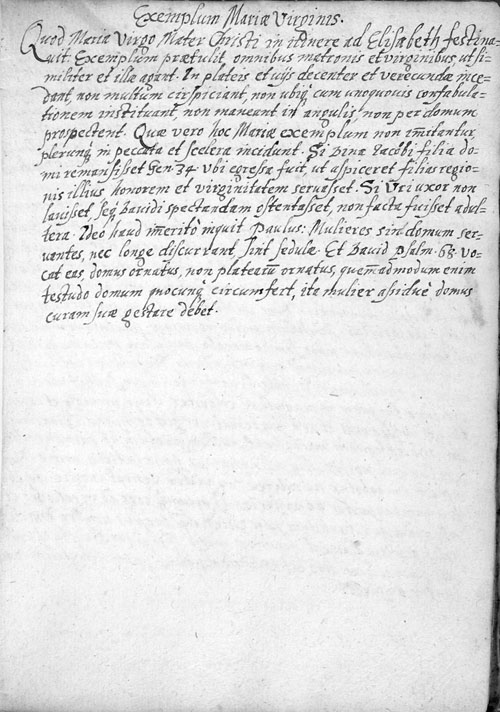 Exemplum Mariæ Virginis.
Quod Maria Virgo Mater Christi in itinere ad Elisabeth festina-
uit. Exemplum prætulit, omnibus matronis et virginibus, ut si-
militer et illæ agant. In plateis et vijs decenter et verecunde ince-
dant, non multum cirspiciant, non ubiq; cum unoquouis confabula-
tionem instituant, non maneant in angulis, non per domum
prospectent. Quæ vero hoc Mariæ exemplum non imitantur,
plerunq; in peccata et scelera incidunt. Si Dina Iacobi filia do-
mi remansisset Gen: 34 Vbi egressa fuit, ut aspiceret filias regio-
nis illius honorem et virginitatem seruasset. Si Vriæ uxor non
lauisset, seq; Dauidi spectandam ostentasset, non facta fuisset adul-
tera. Ideo haud immerito inquit Paulus: Mulieres sint domum ser-
uantes, nec longe discurrant, sint sedulæ. Et Dauid Psalm. 68. vo-
cat eas, domus ornatus, non platearum ornatus, quemadmodum enim
testudo domum quocunq; circumfert, ita mulier assidue domus
curam suæ gestare debet.